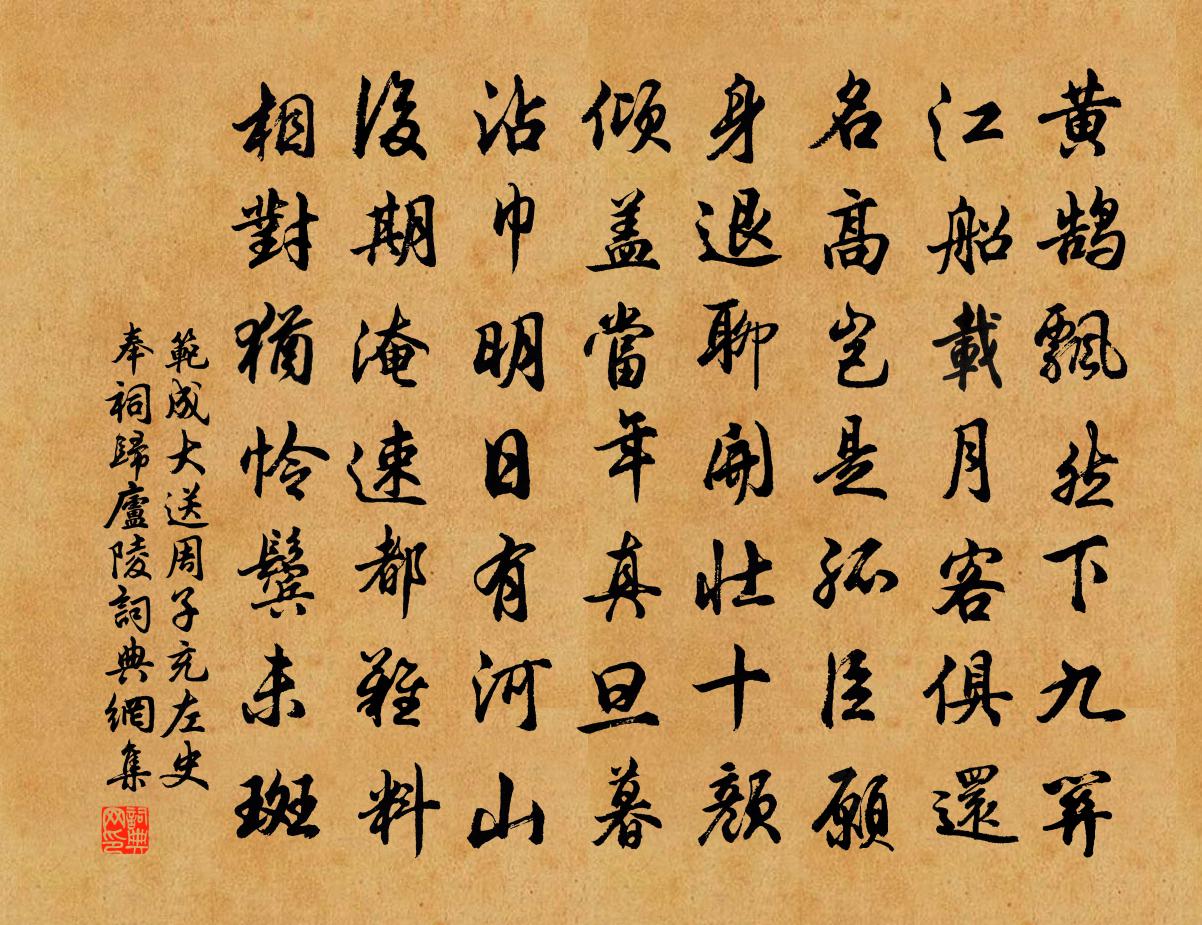 黄鵠飄然下九關
江船載月客俱還
名高岂是孤臣願
身退聊開壯十顏
傾盖當年真旦暮
沾巾明日有河山
後期淹速都難料
相對猶怜鬢未斑
範成大送周子充左史
奉祠歸廬陵詞典網集
詞典
网印